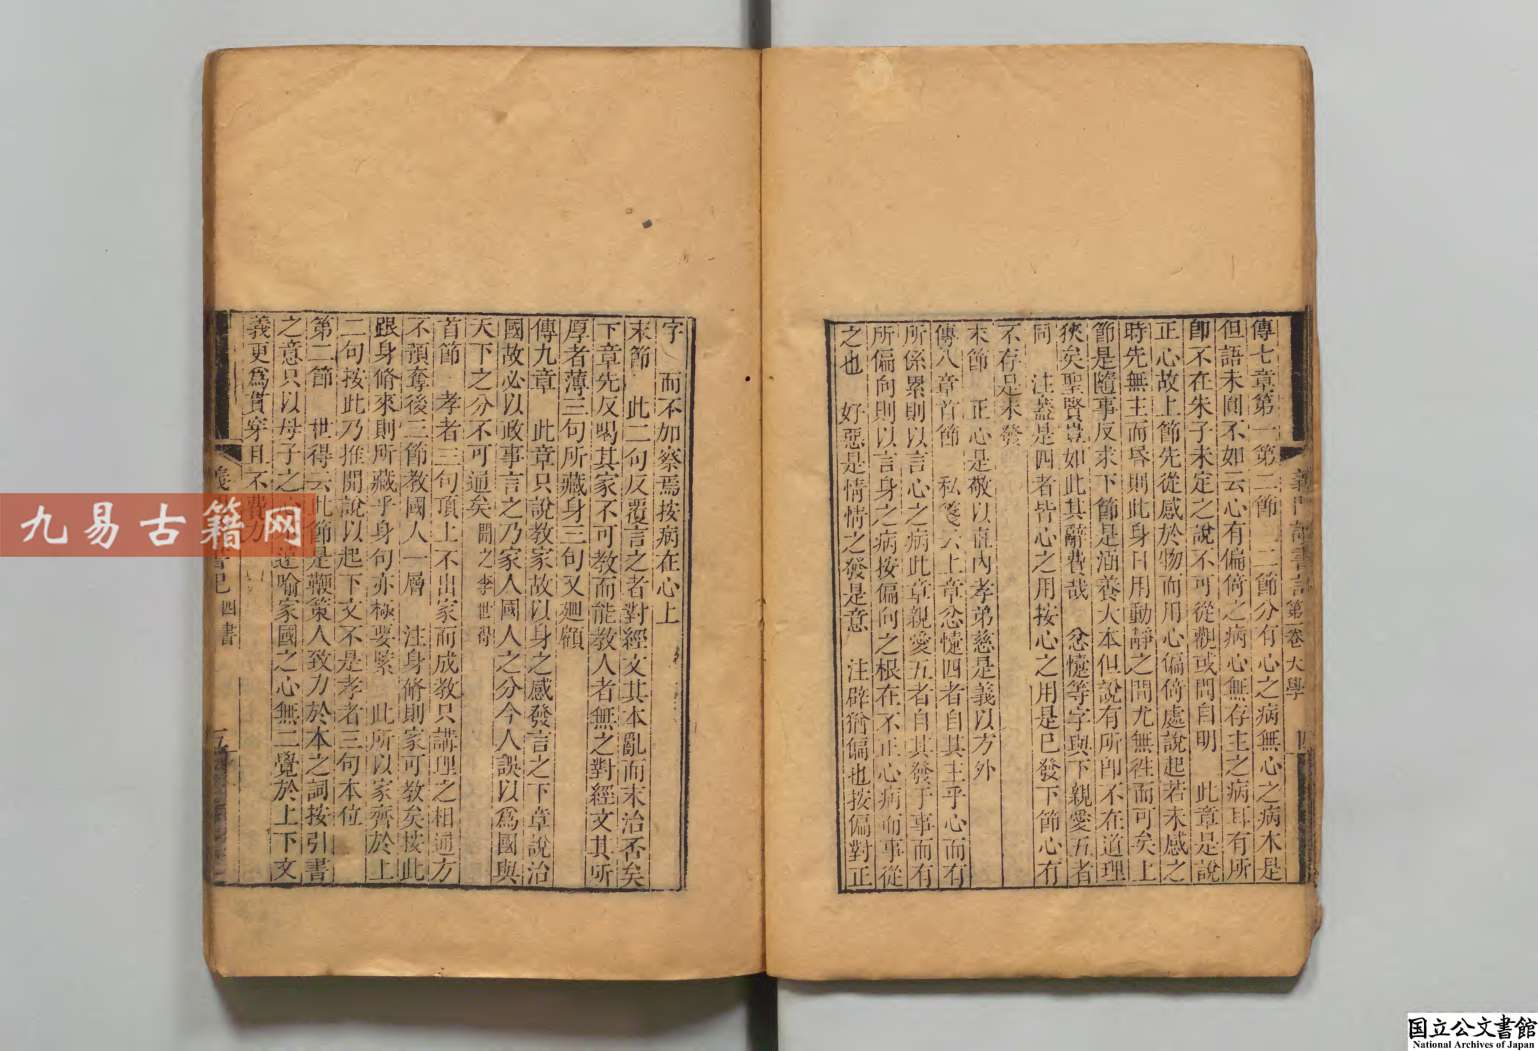 傳七章第一第二節　二節分有心之病無心之病本是
但語未圓不如云心有偏倚之病心無存主之病耳有所
卽不在朱子未定之說不可從觀或問自明　此章是說
正心故上節先從感於物而用心偏倚處說起若未感之
時先無主而昏則此身日用動靜之間尤無往而可矣上
節是隨事反求下節是涵養大本但說有所卽不在道理
狹矣聖賢豈如此其辭費哉　忿懥等字與下親愛五者
同　注蓋是四者皆心之用按心之用是已發下節心有
不存是未發
末節　正心是敬以直內孝弟慈是義以方外
傳八章首節　私箋云上章忿懥四者自其主乎心而有
所係累則以言心之病此章親愛五者自其發于事而有
所偏向則以言身之病按偏向之根在不正心病而事從
之也　好惡是情情之發是意　注辟猶偏也按偏對正
義門讀書記 第一卷 大學 四
字　而不加察焉按病在心上
末節　此二句反覆言之者對經文其本亂而末治否矣
下章先反喝其家不可教而能教人者無之對經文其所
厚者薄三句所藏身三句又廻顧
傳九章　此章只說教家故以身之感發言之下章說治
國故必以政事言之乃家人國人之分今人誤以爲國與
天下之分不可通矣聞之李世得
首節　孝者三句頂上不出家而成教只講理之相通方
不預奪後三節教國人一層　注身脩則家可教矣按此
跟身脩來則所藏乎身句亦極要緊　此所以家齊於上
二句按此乃推開說以起下文不是孝者三句本位
第二節　世得云此節是鞭策人致力於本之詞按引書
之意只以母子之心遠喻家國之心無二覺於上下文
義更爲貫穿且不費力
義 書記 四書 五
九易古籍网
国立公文書館
National Archives of Japan